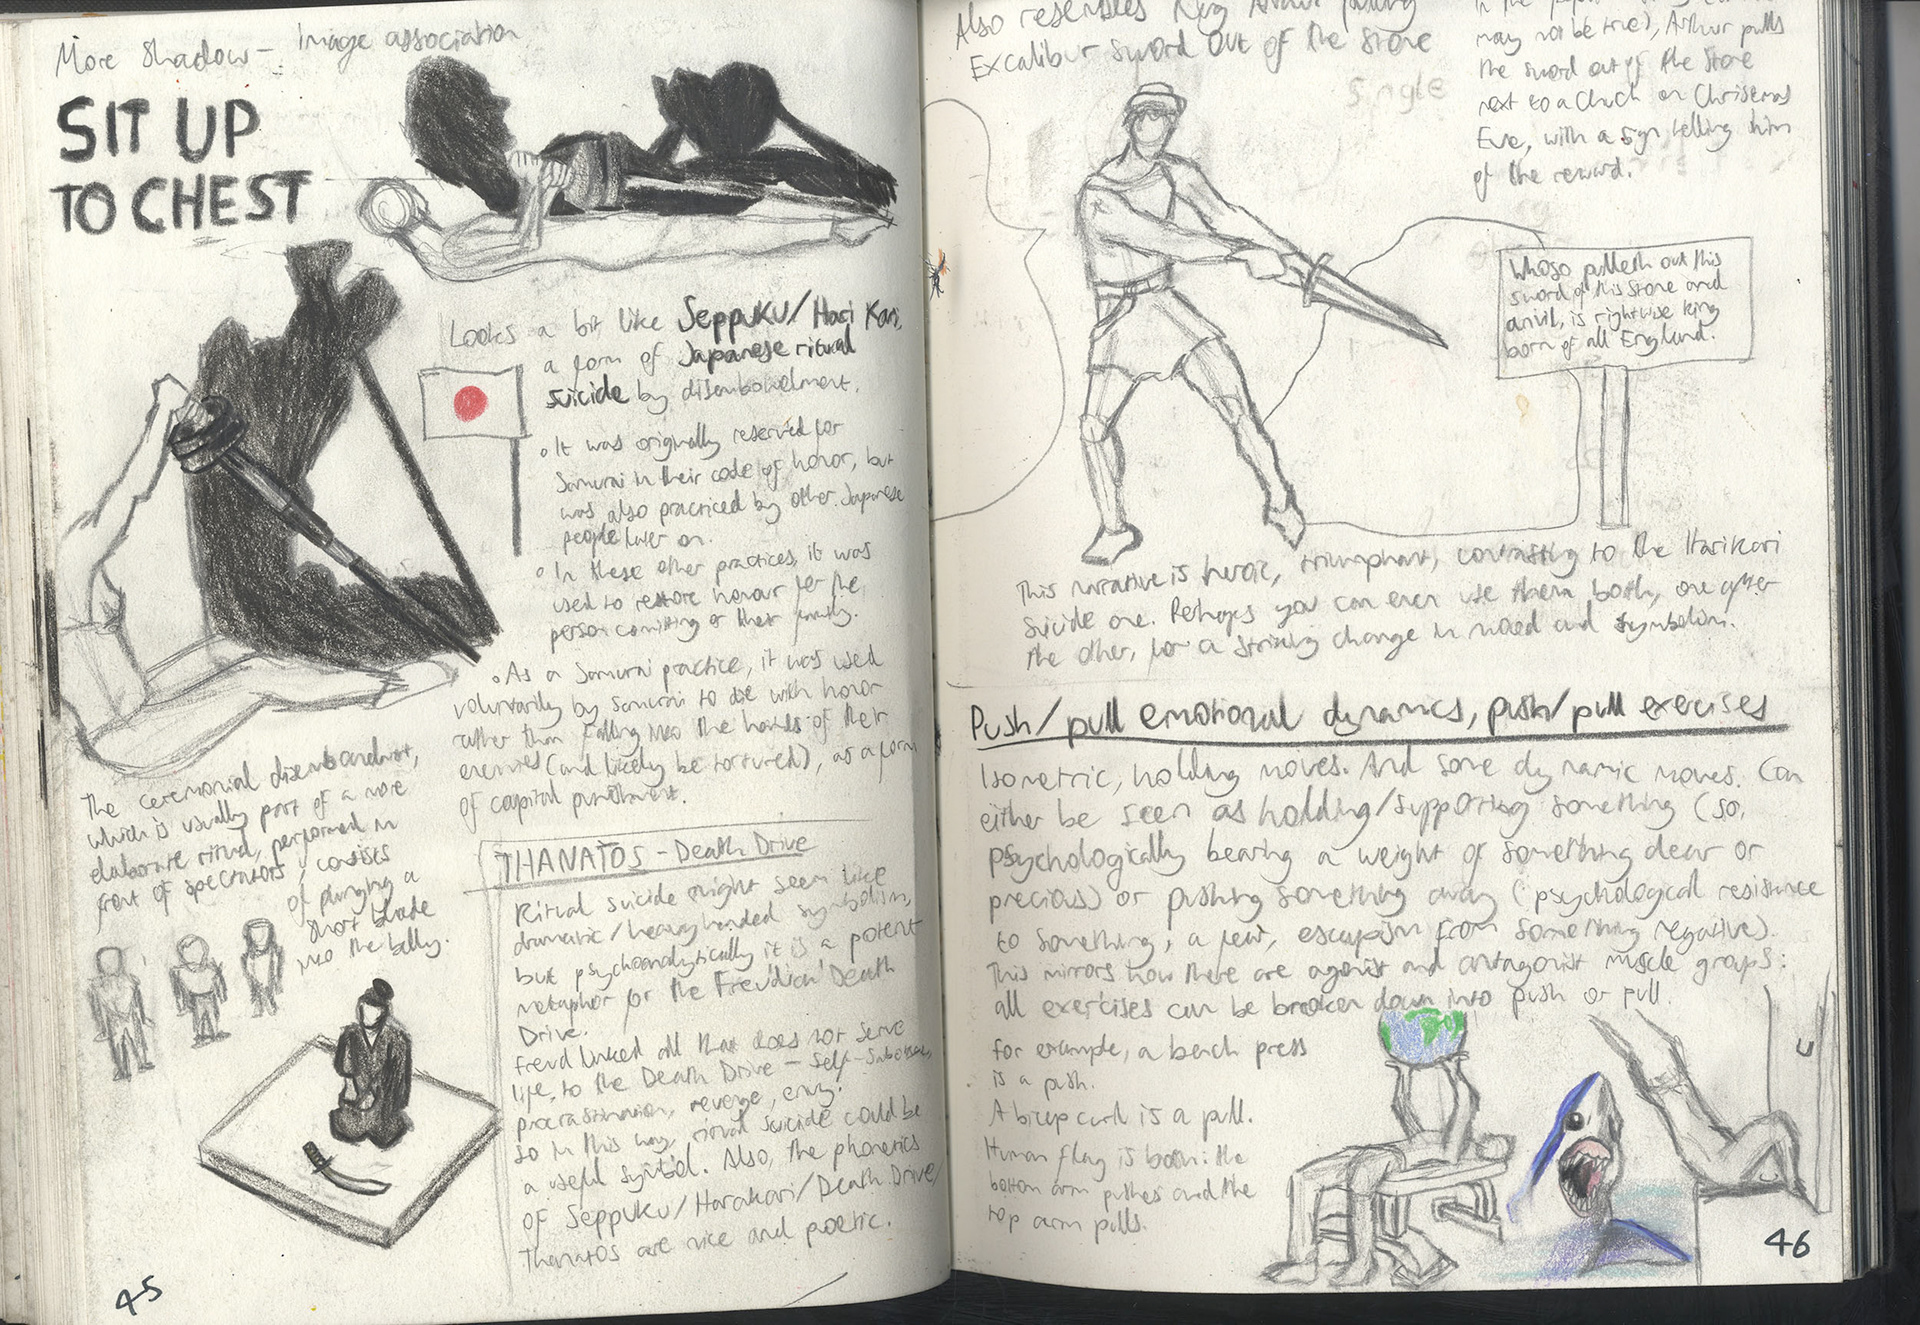 More Shadow - image association
SIT UP
TO CHEST
Looks a bit like Seppuku/Hari Kari,
a form of Japanese ritual
suicide by disembowelment.
It was originally reserved for
Samurai in their code of honor, but
was also practiced by other Japanese
people later on.
In these other practices, it was
used to restore honour for the
person comitting or their family.
As a Samurai practice, it was used
voluntarily by Samurai to die with honor
rather than falling into the hands of their
enemies (and likely be tortured), as a form
of capital punishment.
The ceremonial
which is usually part of a more
elaborate ritual, performed in
front of spectators, consists
of plunging a
short blade
into the belly.
THANATOS - Death Drive
Ritual suicide might seem like
dramatic/heavy handed symbolism,
but psychoanalytically it is a potent
metaphor for the Freudian Death
Drive.
Freud linked all that does not serve
life, to the Death Drive - Self-Sabotage,
procrastination, revenge, envy.
So in this way, ritual suicide could be
a useful symbol. Also, the phonetics
of Seppuku/Harakari/Death Drive/
Thanatos are nice and poetic.
45
Also resembles King Arthur pulling
Excalibur sword out of the stone
Single
may not be true), Arthur pulls
the sword out of the stone
next to a Church on Christmas
Eve, with a sign telling him
of the reward.
Whoso pulleth out this
sword of this stone and
anvil, is rightwise king
born of all England.
This narrative is heroic, triumphant, contrasting to the Harikari
suicide one. Perhaps you can even use them both, one after
the other, for a striking change in mood and symbolism.
Push/pull emotional dynamics, push/pull exercises
Isometric, holding moves. And some dynamic moves. Can
either be seen as holding/supporting something (so,
psychologically bearing a weight of something dear or
precious) or pushing something away (psychological resistance
to something, a fear, escapism from something negative).
This mirrors how there are agonist and antagonist muscle groups:
all exercises can be broken down into push or pull.
for example, a bench press
is a push.
A bicep curl is a pull.
Human flag is both: the
bottom arm pushes and the
top arm pulls.
46